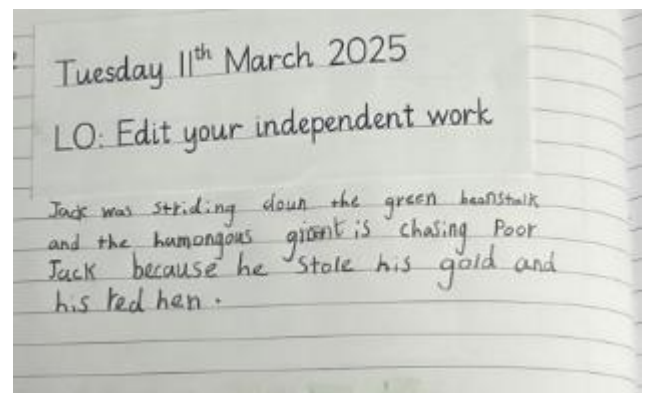 Tuesday 11th March 2025
LO: Edit your independent work
Jack was striding doun the green beanstalk
and the humongous giant is chasing Poor
Jack because he Stole his gold and
his red hen.